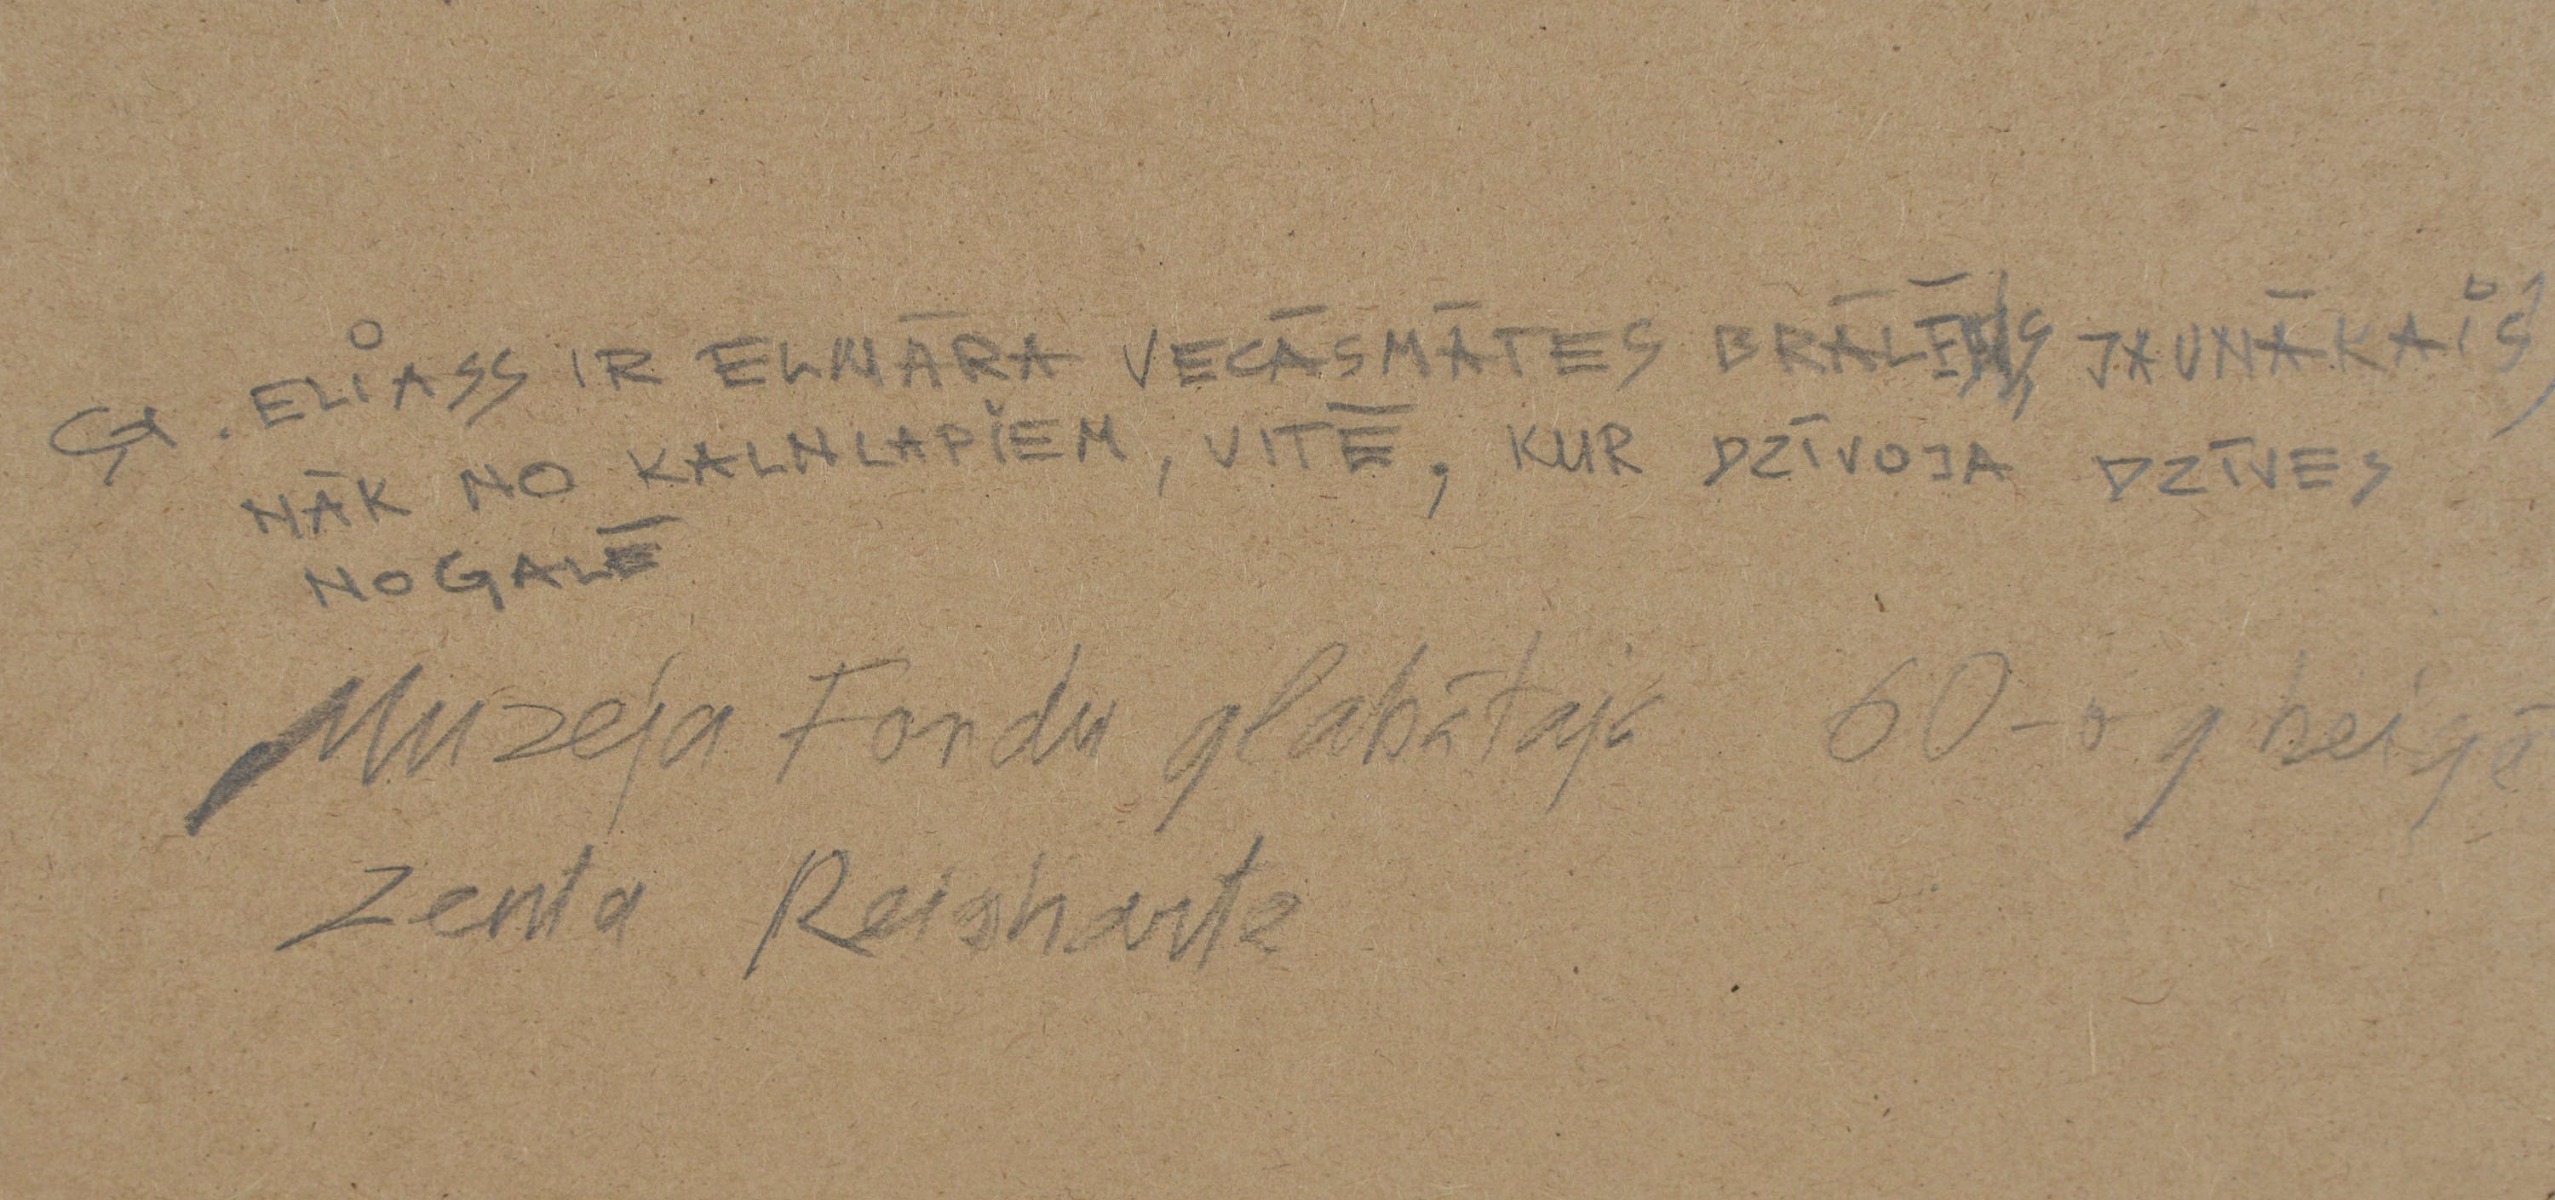 G. ELIASS IR ELMĀRA VECĀSMĀTES BRĀLĒNS, JAUNĀKAIS,
NĀK NO KALNLAPIEM, VITĒ, KUR DZĪVOJA DZĪVES
NOGALĒ
Muzeja Fondu glabātāja 60-o g beigā
Zenta